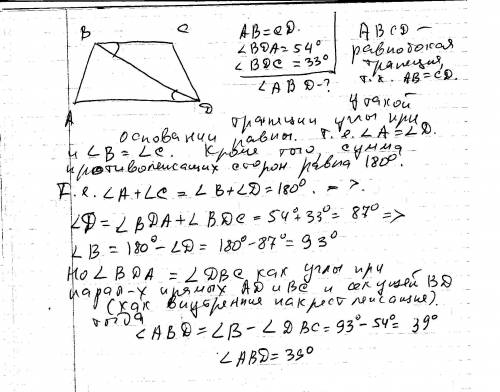 B C
A D
AB=CD.
∠BDA=54°
∠BDC=33°
∠ABD-?
ABCD—
равнобокая
трапеция,
т.к. AB=CD.
У такой
трапеции углы при
основании равны. т.е. ∠A=∠D.
и ∠B=∠C. Кроме того, сумма
противолежащих сторон равна 180°.
Т.е. ∠A+∠C=∠B+∠D=180°. =>.
∠D=∠BDA+∠BDC=54°+33°=87° =>
∠B=180°-∠D=180°-87°=93°
Но ∠BDA=∠DBC как углы при
парал-х прямых AD и BC и секущей BD
(как внутренние накрест лежащие).
тогда
∠ABD=∠B-∠DBC=93°-54°=39°
∠ABD=39°